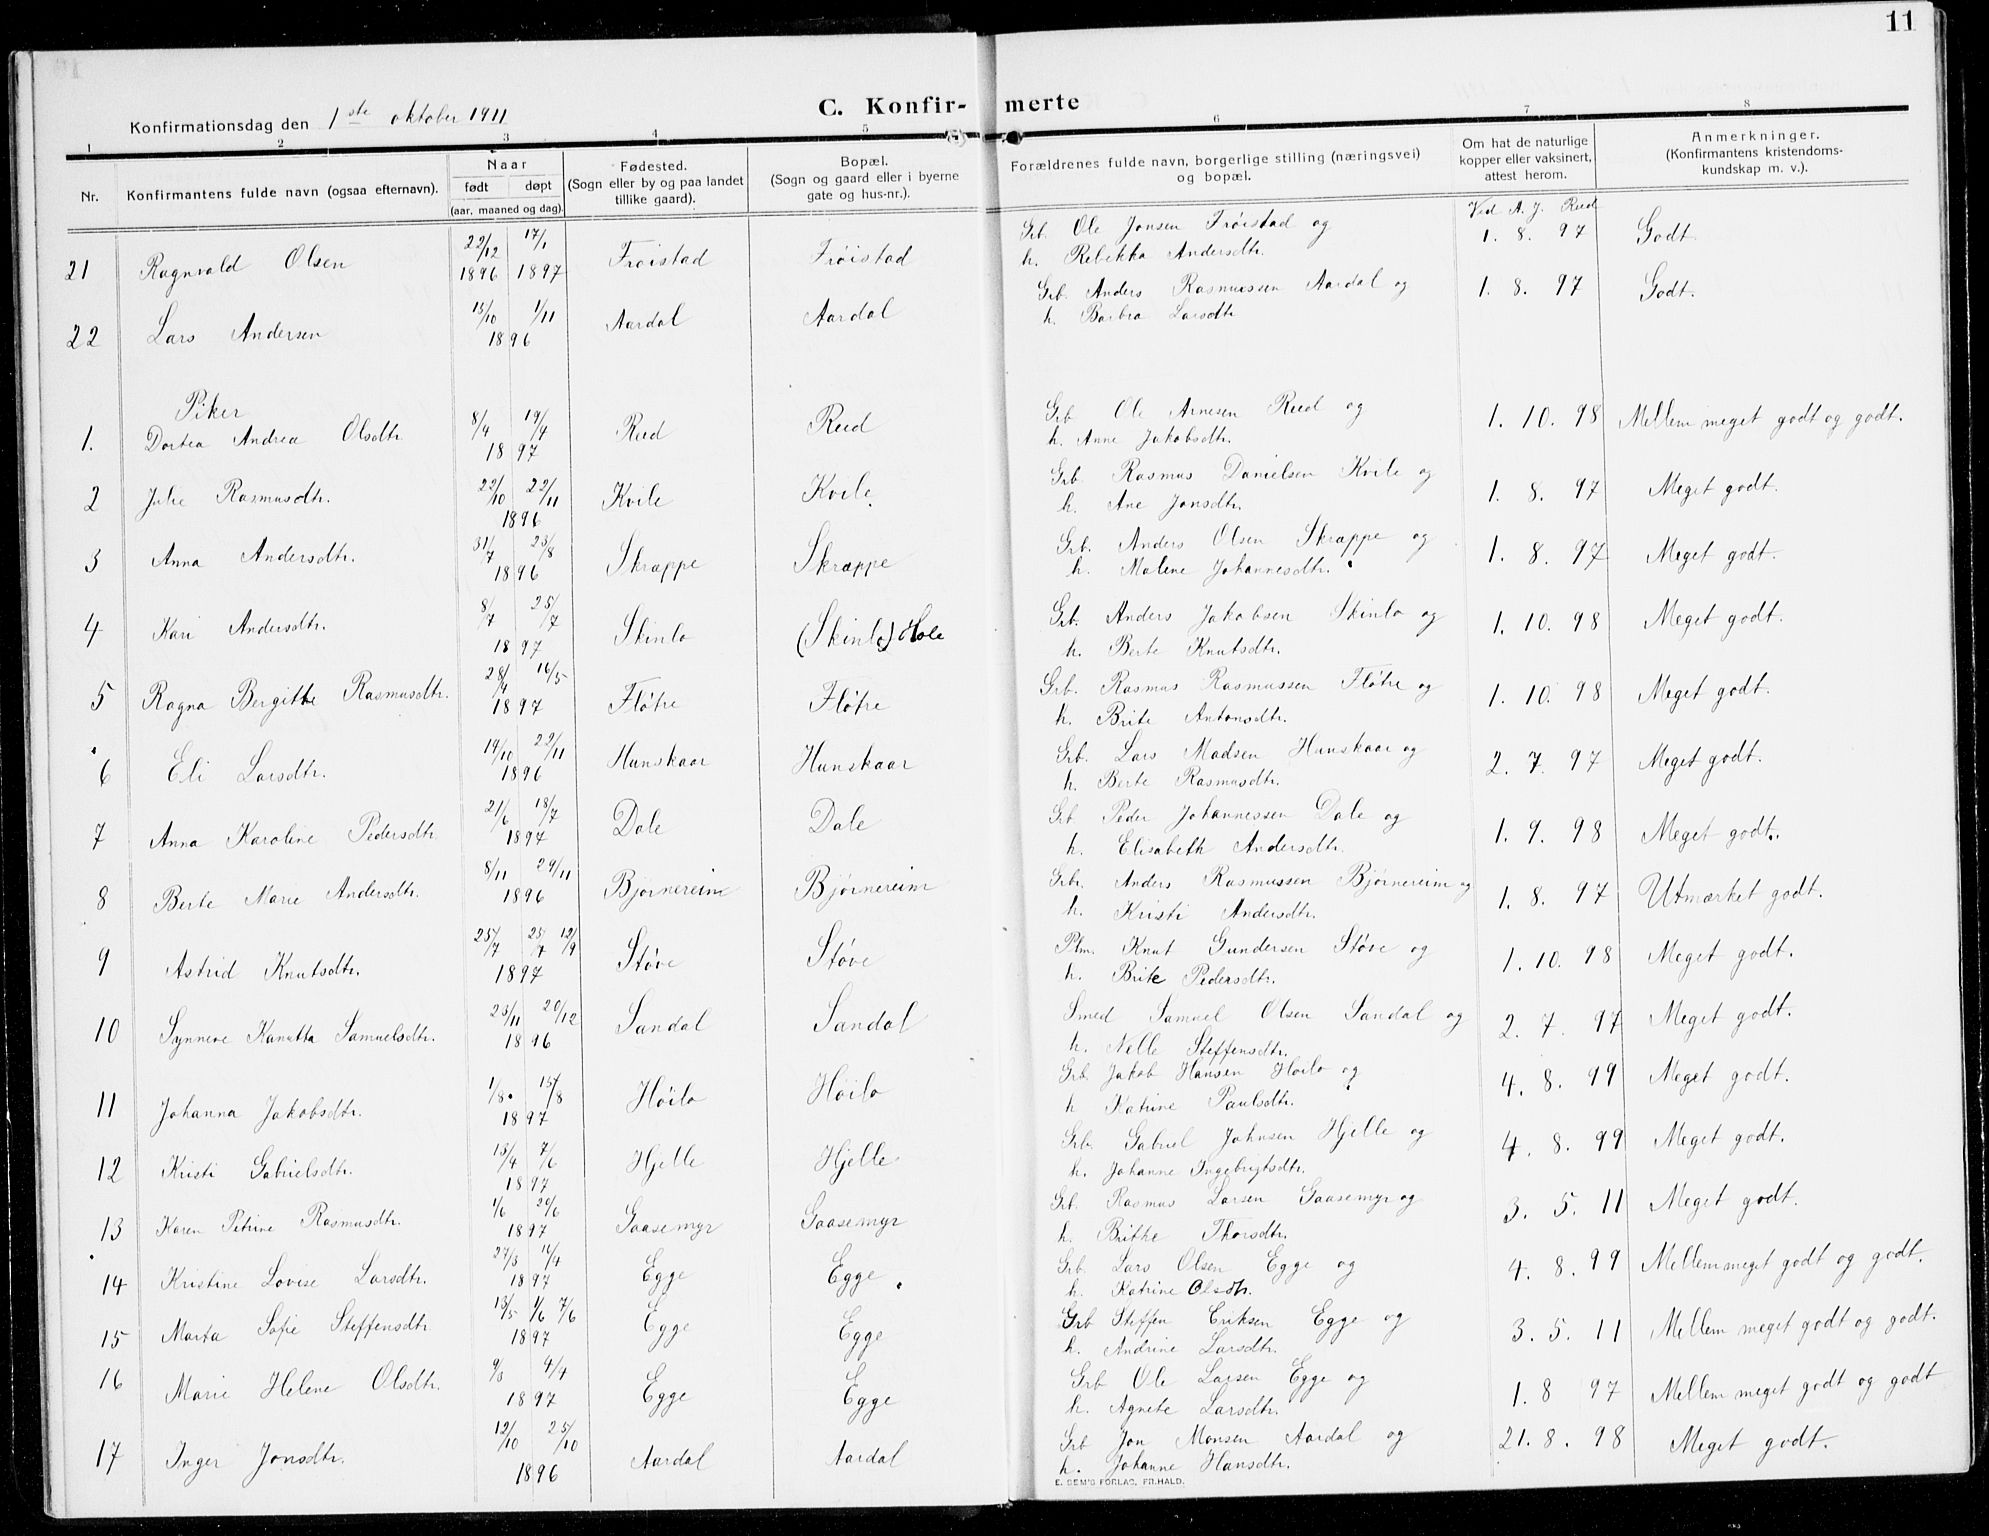 11
C. Konfirmerte
Konfirmationsdag den 1ste oktober 1911
1 2 3 4 5 6 7 8
Nr. Konfirmantens fulde navn (ogsaa efternavn). Naar født døpt (aar, maaned og dag). Fødested. (Sogn eller by og paa landet tillike gaard). Bopæl. (Sogn og gaard eller i byerne gate og hus-nr.). Forældrenes fulde navn, borgerlige stilling (næringsvei) og bopæl. Om hat de naturlige kopper eller vaksinert, attest herom. Anmerkninger. (Konfirmantens kristendoms-kundskap m. v.).
21 Ragnvald Olsen 22/12 1896 17/1 1897 Frøistad Frøistad Grb. Ole Jonsen Frøistad og Ved A. J. Rued 1. 8. 97 Godt
h. Rebekka Andersdtr.
22 Lars Andersen 15/10 1/11 1896 Aardal Aardal Grb. Anders Rasmussen Aardal og 1. 8. 97 Godt.
h. Barbra Larsdtr
Piker
1. Dortea Andrea Olsdtr. 8/4 19/4 1897 Rud Rud Grb Ole Arnesen Rud og 1. 10. 98 Mellem meget godt og godt.
h. Anne Jakobsdtr.
2 Julie Rasmusdtr. 22/10 22/11 1896 Kvile Kvile Grb. Rasmus Danielsen Kvile og 1. 8. 97 Meget godt.
h. Ane Jonsdtr.
3 Anna Andersdtr. 31/7 23/8 1896 Skrappe Skræppe Grb. Anders Olsen Skræppe og 1. 8. 97 Meget godt.
h. Malene Johannesdtr.
4 Kari Andersdtr. 8/7 25/7 1897 Skinlo (Skinlo) Hole Grb. Anders Jakobsen Skinlo og 1. 10. 98 Meget godt.
h. Berte Knutsdtr.
5 Ragna Bergitte Rasmusdtr. 28/4 16/5 1897 Fløtre Fløtre Grb. Rasmus Rasmussen Fløtre og 1. 10. 98 Meget godt.
h. Brite Antonsdtr.
6 Eli Larsdtr. 19/10 22/11 1896 Hunskaar Hunskaar Grb. Lars Madsen Hunskaar og 2. 7. 97 Meget godt.
h. Berte Rasmusdtr.
7 Anna Karoline Pedersdtr. 21/6 18/7 1897 Dale Dale Grb. Peder Johannessen Dale og 1. 9. 98 Meget godt.
h. Elisabeth Andersdtr.
8 Berte Marie Andersdtr. 8/11 29/11 1896 Bjørnereim Bjørnereim Grb. Anders Rasmussen Bjørnereim og 1. 8. 97 Utmærket godt.
h. Kristi Andersdtr.
9 Astrid Knutsdtr. 25/7 25/7 12/9 1897 Støve Støve Plm. Knut Gundersen Støve og 1. 10. 98 Meget godt.
h. Brite Pedersdtr.
10 Synneve Kanutta Samuelsdtr. 23/11 20/12 1896 Sandal Sandal Smed Samuel Olsen Sandal og 2. 7. 97 Meget godt.
h. Nelle Steffensdtr.
11 Johanna Jakobsdtr. 1/8 15/8 1897 Høilo Høilo Grb. Jakob Hansen Høilo og 4. 8. 99 Meget godt.
h Katrine Paulsdtr.
12 Kristi Gabrielsdtr. 13/4 7/6 1897 Hjelle Hjelle Grb. Gabriel Johnsen Hjelle og 4. 8. 99 Meget godt.
h. Johanne Ingebrigtsdtr.
13 Karen Petrine Rasmusdtr. 1/6 20/6 1897 Gaasemyr Gaasemyr Grb. Rasmus Larsen Gaasemyr og 3. 5. 11 Meget godt.
h. Brithe Thorsdtr.
14 Kristine Lovise Larsdtr. 27/3 11/4 1897 Egge Egge Grb. Lars Olsen Egge og 4. 8. 99 Mellem meget godt og godt.
h. Katrine Olsdtr.
15 Marta Sofie Steffensdtr. 13/5 1/6 7/6 1897 Egge Egge Grb Steffen Eriksen Egge og 3. 5. 11 Mellem meget godt og godt.
h. Andrine Larsdtr.
16 Marie Helene Olsdtr. 9/3 4/4 1897 Egge Egge Grb Ole Larsen Egge og 1. 8 97 Mellem meget godt og godt
h. Agnete Larsdtr.
17 Inger Jonsdtr. 12/10 25/10 1896 Aardal Aardal Grb Jon Monsen Aardal og 21. 8. 98 Meget godt.
h. Johanne Hansdtr.
E. SEM'S FORLAG, FR.HALD.